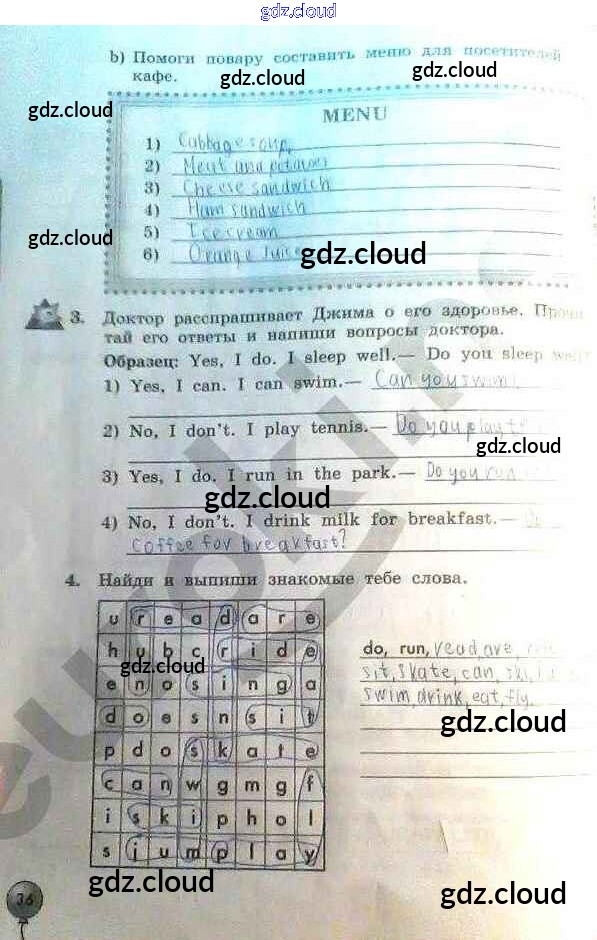 gdz.cloud
b) Помоги повару составить меню для посетителей
кафе.
gdz.cloud
gdz.cloud
gdz.cloud
MENU
1) Cabbage soup
2) Meat and potatoes
3) Cheese sandwich
4) Ham sandwich
5) Icecream
6) Orange Juice
gdz.cloud
gdz.cloud
3. Доктор расспрашивает Джима о его здоровье.
тай его ответы и напиши вопросы доктора.
Образец: Yes, I do. I sleep well.— Do you sleep well?
1) Yes, I can. I can swim.— Can you swim
2) No, I don't. I play tennis.— Do you play
gdz.cloud
3) Yes, I do. I run in the park.— Do you run
gdz.cloud
4) No, I don't. I drink milk for breakfast.—
coffee for breakfast?
4. Найди и выпиши знакомые тебе слова.
u r e a d a r e
h u b c r i d e
e n o s i n g a
d o e s n s i t
p d o s k a t e
c a n w g m g f
i s k i p h o l
s j u m p l a y
gdz.cloud
do, run, read, are,
sit, skate, can, ski,
swim, drink, eat, fly.
gdz.cloud
gdz.cloud
gdz.cloud
36